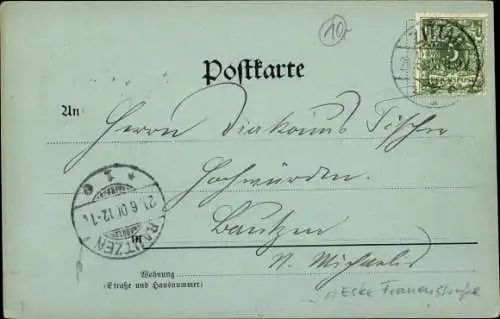 10-
ZITTAU
Postkarte
An Herrn Diakonus Fischer
Hochwürden.
BAUTZEN
21.6.01.12-1
Bautzen
in
N. Michaelis
Wohnung
(Straße und Hausnummer)
Ecke